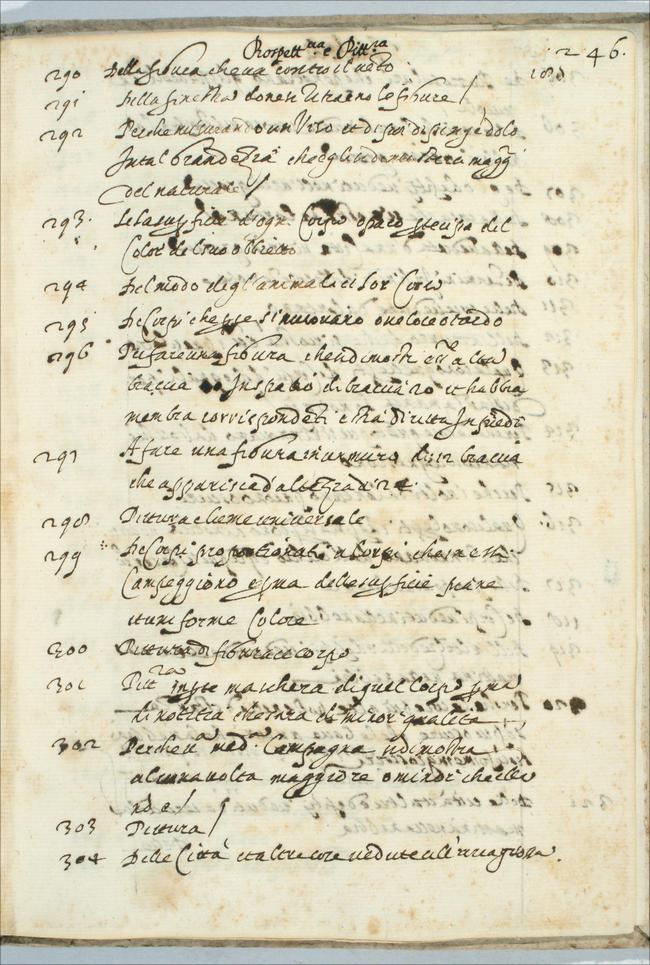 Prospett.ua e Pitt.ra 246.
290 Della figura che ua contro il uẽto 188
291 Della finestra donde si ritrae le figure /
292 Perche misurando un Viso et di poi dipingẽdolo
In tal grandezza che
del naturale /
293. Se la superficie d'ogni Corpo opaco del
Color del suo obbietto
294 Del modo degl'animali et lor Corso
295 De Corpi che se ueloce o tardo
296 Per fare una figura che dimostri
braccia In spatio di braccia 20 et habbia
membra corrispondẽti e stia diritta In piedi
297 A fare una figura in un muro di 12 braccia
che apparisca d'altezza di 24
298 Pittura e lieme uniuersale
299 De Corpi proportionati a Corpi che
Campeggiono e pima delle superficie piane
et uniforme Colore
300 Pittura di figura et corpo
301 Pitt.ra maschera di quel Corpo
di notitia che sara di minor qualita
302 Perche una med.a Campagna si dimostra
alcuna uolta maggiore o minor che ella
nõ e /
303 Pittura /
304 Delle Città et altre cose uedute all'aria grossa.